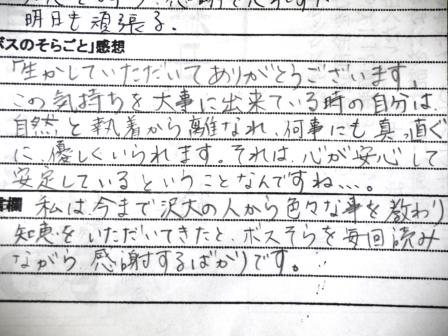 明日も頑張る.
ボスのそらごと」感想
「生かしていただいてありがとうございます.
この気持ちを大事に出来ている時の自分は、
自然と執着から離なれ、何事にも真っ直ぐ
に、優しくいられます。それは、心が安心して
安定しているということなんですね…。
私は今まで沢大の人から色々な事を教わり
知恵をいただいてきたと、ボスそらを毎回読み
ながら感謝するばかりです。